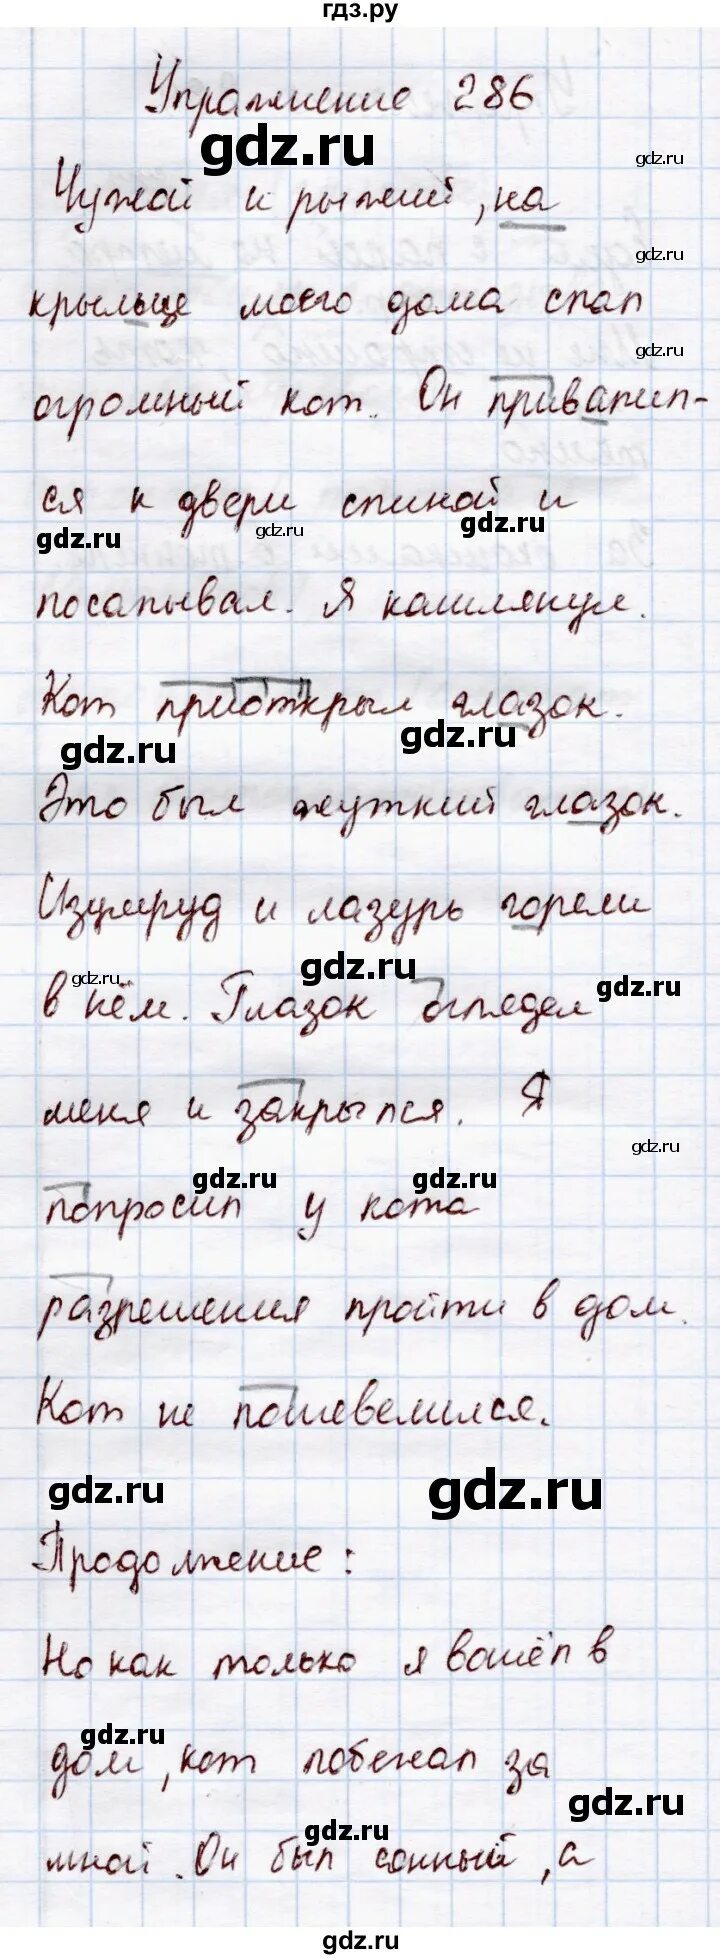 гдз.ру
Упражнение 286
gdz.ru
gdz.ru
Чужой и рыжий, на
gdz.ru
крыльце моего дома спал
gdz.ru
огромный кот. Он привалил-
ся к двери спиной и
gdz.ru gdz.ru gdz.ru
посапывал. Я кашлянул.
Кот приоткрыл глазок.
gdz.ru gdz.ru
Это был жуткий глазок.
Изумруд и лазурь горели
gdz.ru gdz.ru gdz.ru
в нём. Глазок оглядел
меня и закрылся. Я
gdz.ru
gdz.ru gdz.ru
попросил у кота
разрешения пройти в дом.
Кот не пошевелился.
gdz.ru gdz.ru
Продолжение:
Но как только я вошёл в
gdz.ru
дом, кот побежал за
gdz.ru
gdz.ru
мной. Он был сонный, а
gdz.ru